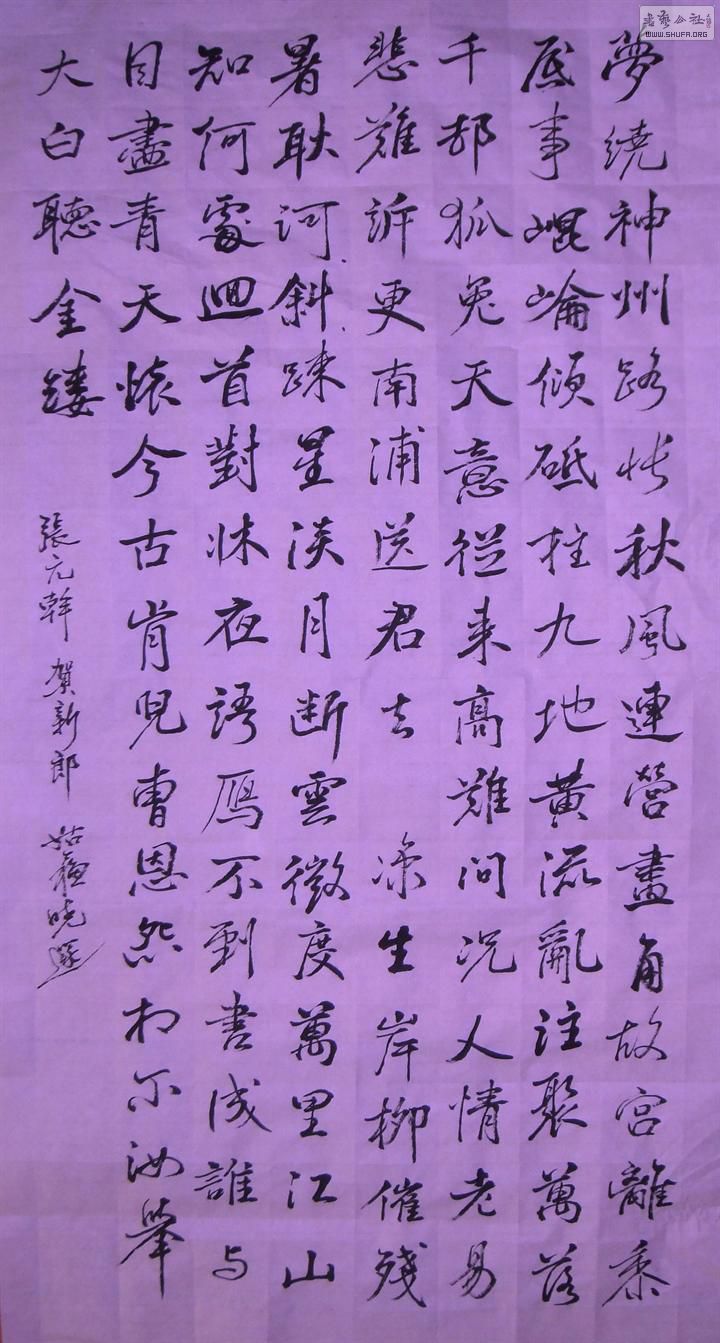 夢繞神州路悵秋風連營畫角故宮離黍
底事崐崘傾砥柱九地黃流亂注聚萬落
千邨狐兔天意從來高難問况人情老易
悲難訴更南浦送君去 凉生岸柳催殘
暑耿河斜疎星淡月斷雲微度萬里江山
知何處迴首對牀夜語鴈不到書成誰与
目盡青天懷今古肯兒曹恩怨相尔汝舉
大白聽金縷
張元幹 賀新郎 姑蘇曉
書藝公社
WWW.SHUFA.ORG